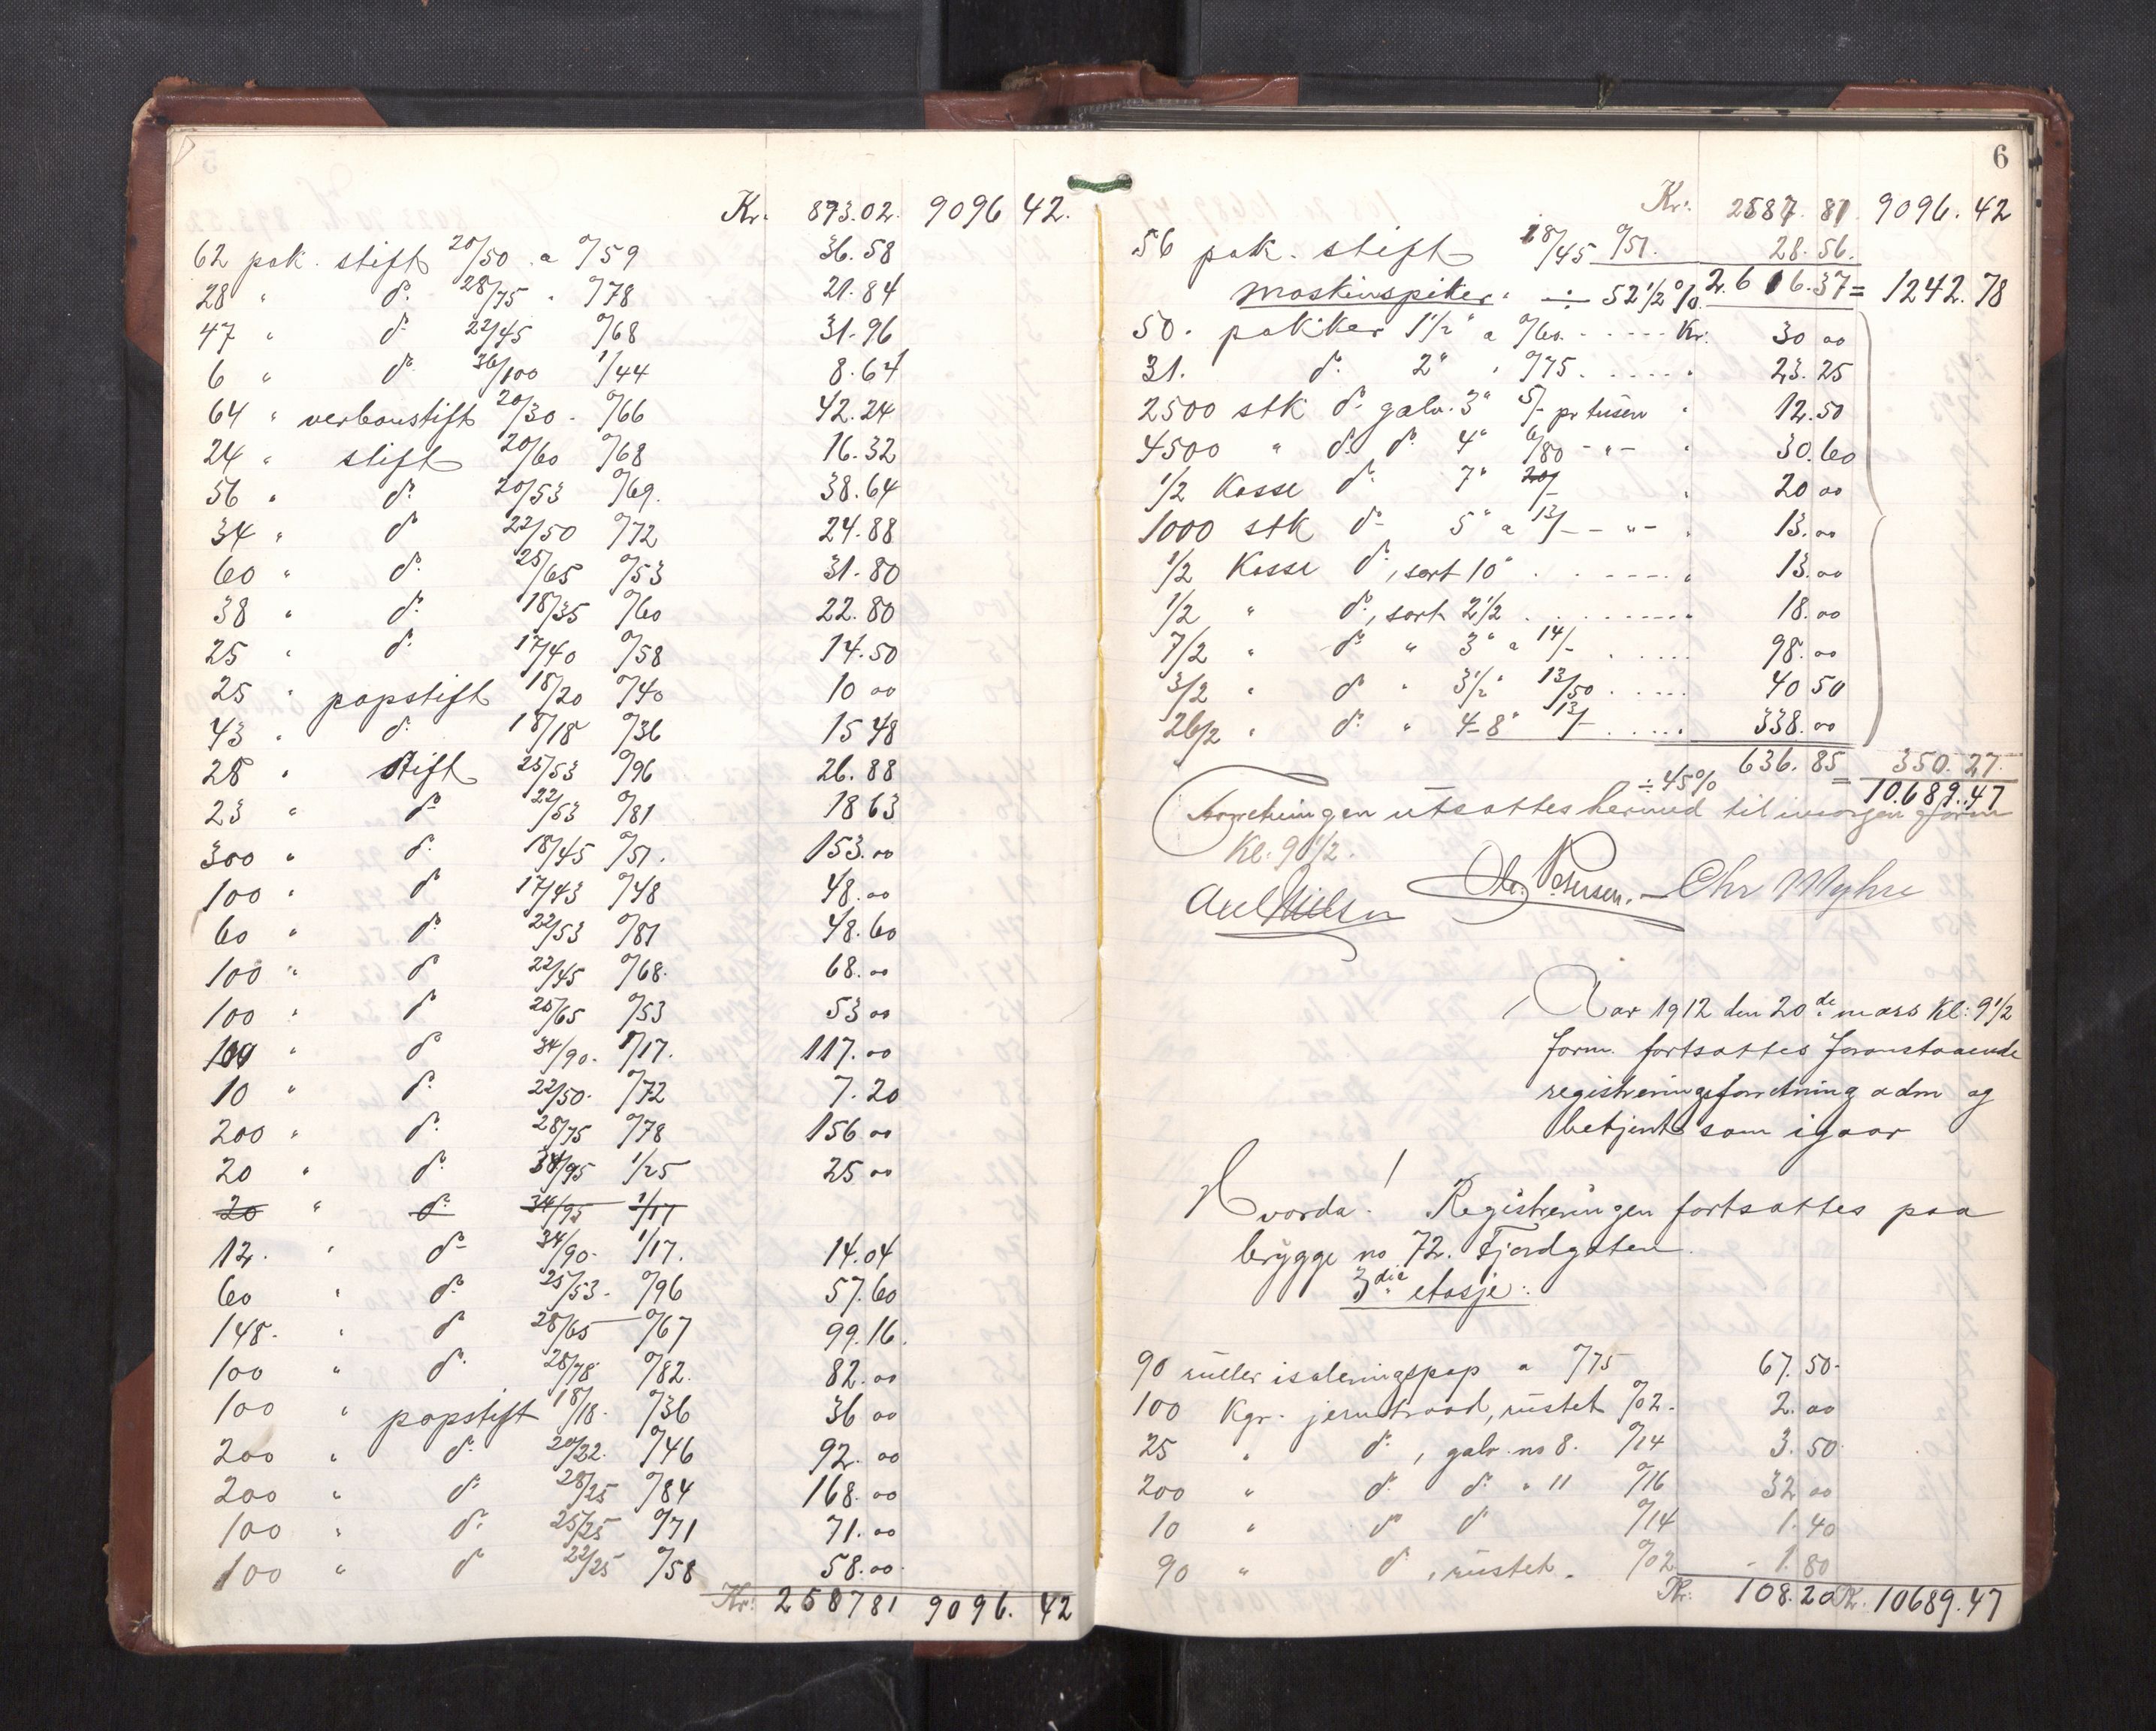 Kr. 893.02. 9096 42.
62 pak. stift 20/50 a 0/59 36.58
28 " do. 28/75 " 0/78 21.84
47 " do 22/45 0/68 31.96
6 " do. 36/100 1/44 8.64
64 " verbanstift 20/30 - 0/66 42.24
24 " stift 20/60 0/68 16.32
56 " do. 20/53 0/69. 38.64
34 " do 22/50 0/72 24.88
60 " do. 25/65 0/53 31.80
38 " do. 18/35 0/60 22.80
25 " do. 17/40 0/58 14.50
25 " papstift 18/20 0/40 10 00
43 " do. 18/18 0/36 15 48
28 " stift 25/53 0/96 26.88
23 " do 22/53 0/81 18 63
300 " do. 18/45 0/51. 153.00
100 " do 17/43 0/48 48.00
60 " do. 22/53 0/81 48.60
100 " do 22/45 0/68. 68.00
100 " do 25/65 0/53 53 00
100 " do 34/90. 1/17. 117.00
10 " do. 22/50. 0/72 7.20
200 " do. 28/75 0/78 156 00
20 " do. 34/95 1/25 25 00
20 " do. 34/95 1/17
12. " do 34/90. 1/17. 14.04
60 " do. 25/53. 0/96 57.60
148. " do 28/65 0/67 99.16.
100 " do. 28/78 0/82. 82.00
100 " papstift 18/18. 0/36 36 00
200 " do. 20/22. 0/46 92. 00
200 " do 28/25 0/84 168.00
100 " do. 25/25 0/71 71.00
100 " do 22/25 0/58 58.00.
Kr. 2587 81 9096. 42
6
Kr. 2587. 81. 9096. 42
56 pak. stift 18/45 0/51. 28.56.
maskinspiker. ÷ 52 1/2 %. 2.616.37 = 1242.78
50. pakker 1 1/2" a 0/60. - - - - Kr. 30 00
31. do. 2" " 0/75. . . . . " 23.25
2500 stk do galv. 3" 5/- pr tusen " 12.50
4500 " do. do. 4" 6/80 - " - " 30.60
1/2 Kasse do. 7" 20/- " 20 00
1000 stk do 5" a 13/- - " - " 13.00
1/2 Kasse do, sort 10" . . - - - . " 13.00
1/2 " do, sort 2 1/2 . . . . . . 18.00
7/2 " do " 3" a 14/- . . . . 98.00
3/2 " do " 3 1/2" 13/50 . . . . 40 50
26/2 " do. " 4-8" 13/- . . . . 338.00
636.85 350.27.
÷ 45% = 10.689.47
Forretningen utsattes hermed til imorgen form
Kl. 9 1/2.
Chr. Petersen. - Chr Myhre
Aar 1912 den 20de mars Kl: 9 1/2
form. fortsattes foranstaaende
registreringsforretning adm og
betjent som igaar
Hvorda! Registreringen fortsattes paa
brygge no 72. Fjordgaten.
3die etasje.
90 ruller isoleringspap a 0/75 67.50.
100 Kgr. jerntraad, rustet 0/02. 2.00
25 " do. , galv. no 8. 0/14 3.50
200 " do. do. " 11 0/16 32 00
10 " do do 0/14 1.40
90 " do , rustet. 0/02 1.80
Kr. 108.20 Kr. 10689.47